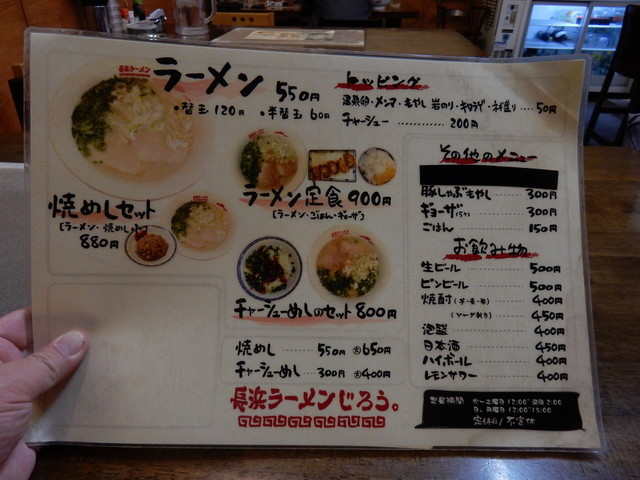 長浜ラーメン
ラーメン 550円
・替玉 120円 ・半替玉 60円
トッピング
温泉卵・メンマ・もやし 岩のり・キクラゲ・ネギ盛り 50円
チャーシュー 200円
ラーメン定食 900円
[ラーメン・ごはん・ギョーザ]
焼めしセット
[ラーメン・焼めし小]
880円
チャーシューめしのセット 800円
焼めし 550円 大650円
チャーシューめし 300円 大400円
長浜ラーメンじろう。
その他のメニュー
豚しゃぶもやし 300円
ギョーザ(5ヶ) 300円
ごはん 150円
お飲み物
生ビール 500円
ビンビール 500円
焼酎(芋・麦・米) 400円
(ソーダ割り) 450円
泡盛 400円
日本酒 450円
ハイボール 400円
レモンサワー 400円
営業時間 火〜土曜日 12:00〜深夜2:00
日、月曜日 12:00〜15:00
定休日/不定休